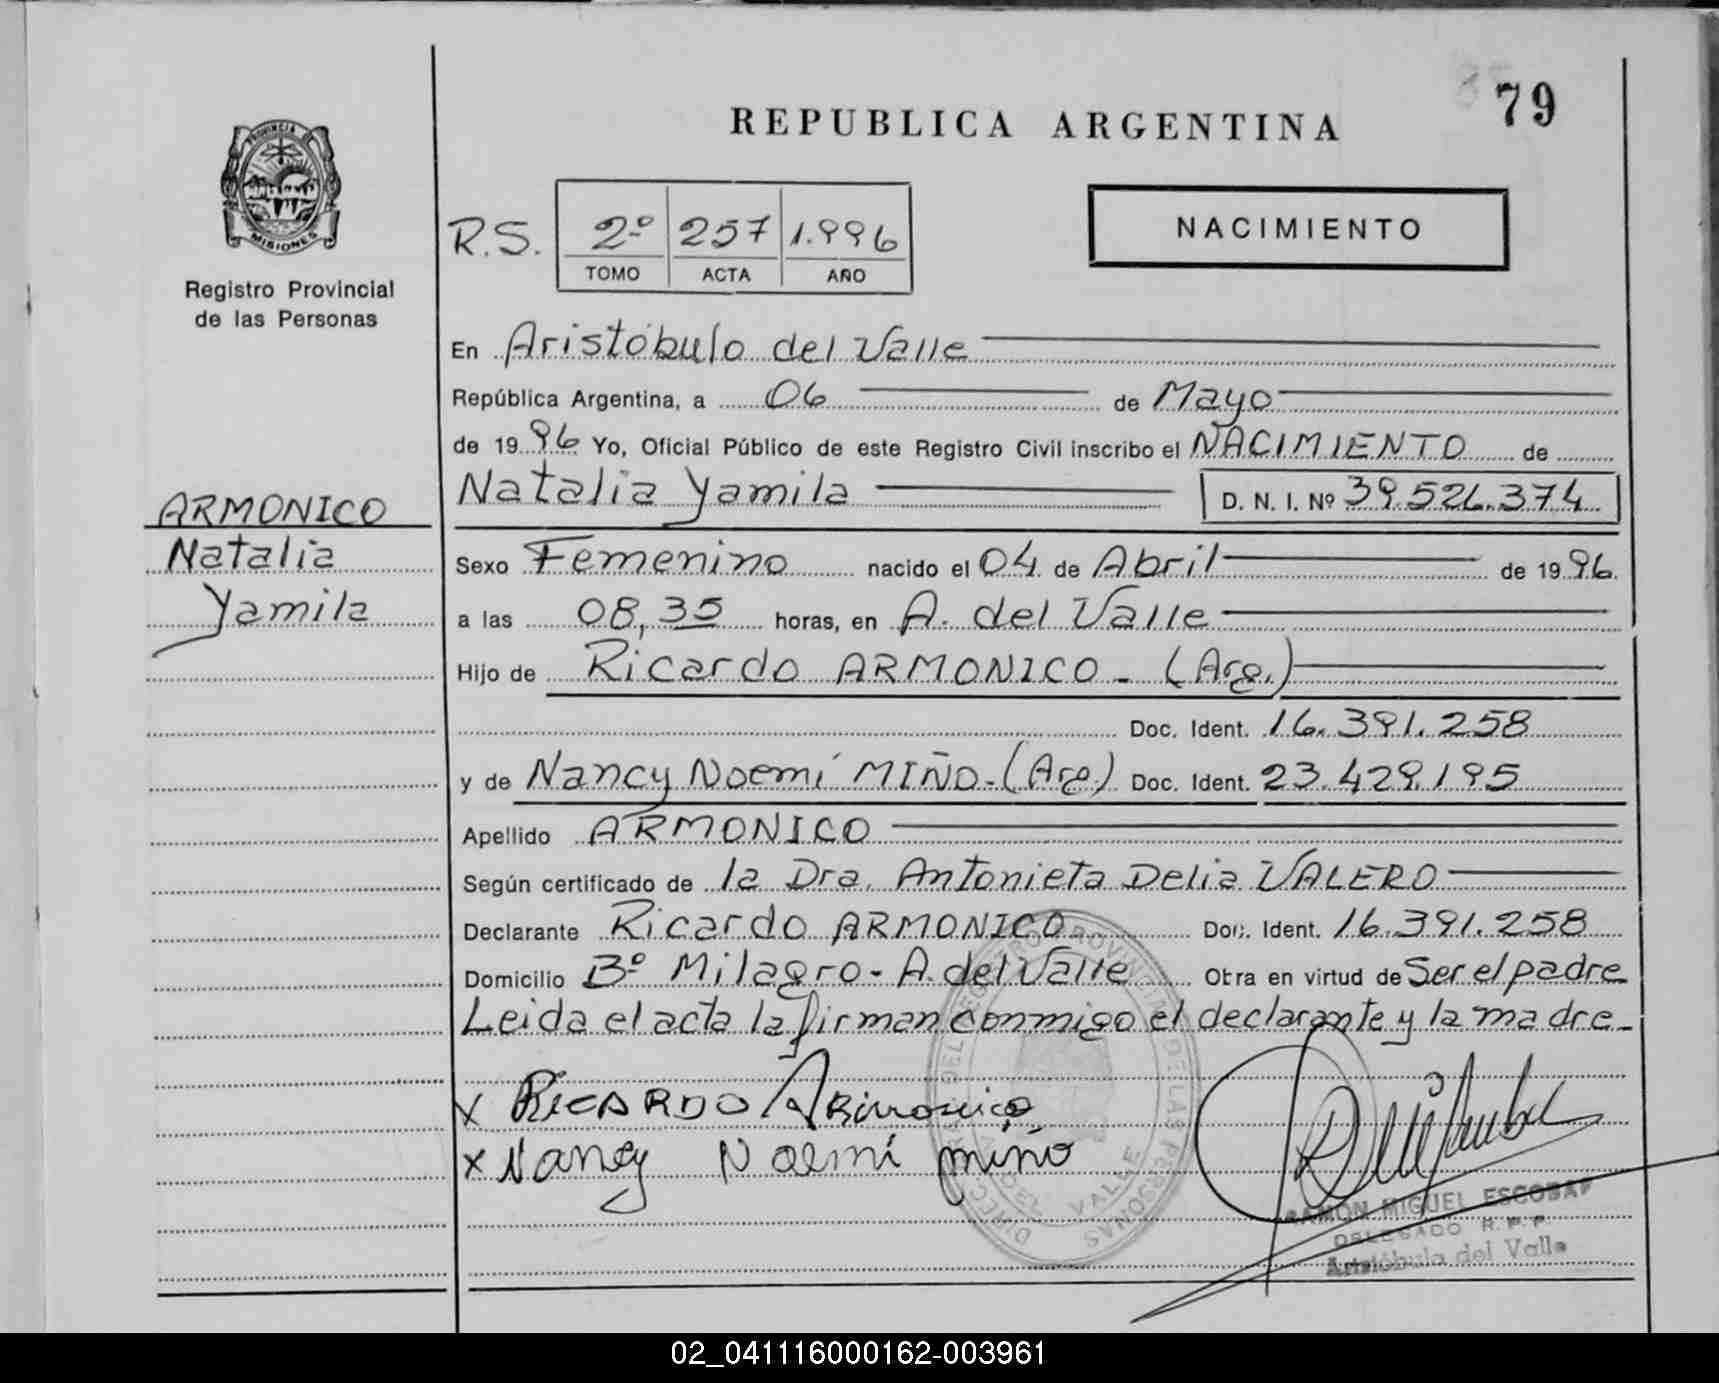 79
REPUBLICA ARGENTINA
PROVINCIA
MISIONES
Registro Provincial
de las Personas
NACIMIENTO
R.S. 2º 257 1.996
TOMO ACTA AÑO
En Aristóbulo del Valle
República Argentina, a 06 de Mayo
de 1996 Yo, Oficial Público de este Registro Civil inscribo el NACIMIENTO de
Natalia Yamila D. N. I. Nº 39.526.374
ARMONICO
Natalia
Yamila
Sexo Femenino nacido el 04 de Abril de 1996
a las 08,35 horas, en A. del Valle
Hijo de Ricardo ARMONICO - (Arg.)
Doc. Ident. 16.391.258
y de Nancy Noemí MIÑO - (Arg.) Doc. Ident. 23.429.195
Apellido ARMONICO
Según certificado de la Dra. Antonieta Delia VALERO
Declarante Ricardo ARMONICO Doc. Ident. 16.391.258
Domicilio Bº Milagro - A. del Valle Otra en virtud de Ser el padre
Leida el acta la firman conmigo el declarante y la madre -
x RICARDO ARMONICO
x Nancy Noemí miño
DEL REGISTRO PROVINCIAL DE LAS PERSONAS
DEL VALLE
RAMON MIGUEL ESCOBAR
DELEGADO R. P. P.
Aristóbulo del Valle
02_041116000162-003961